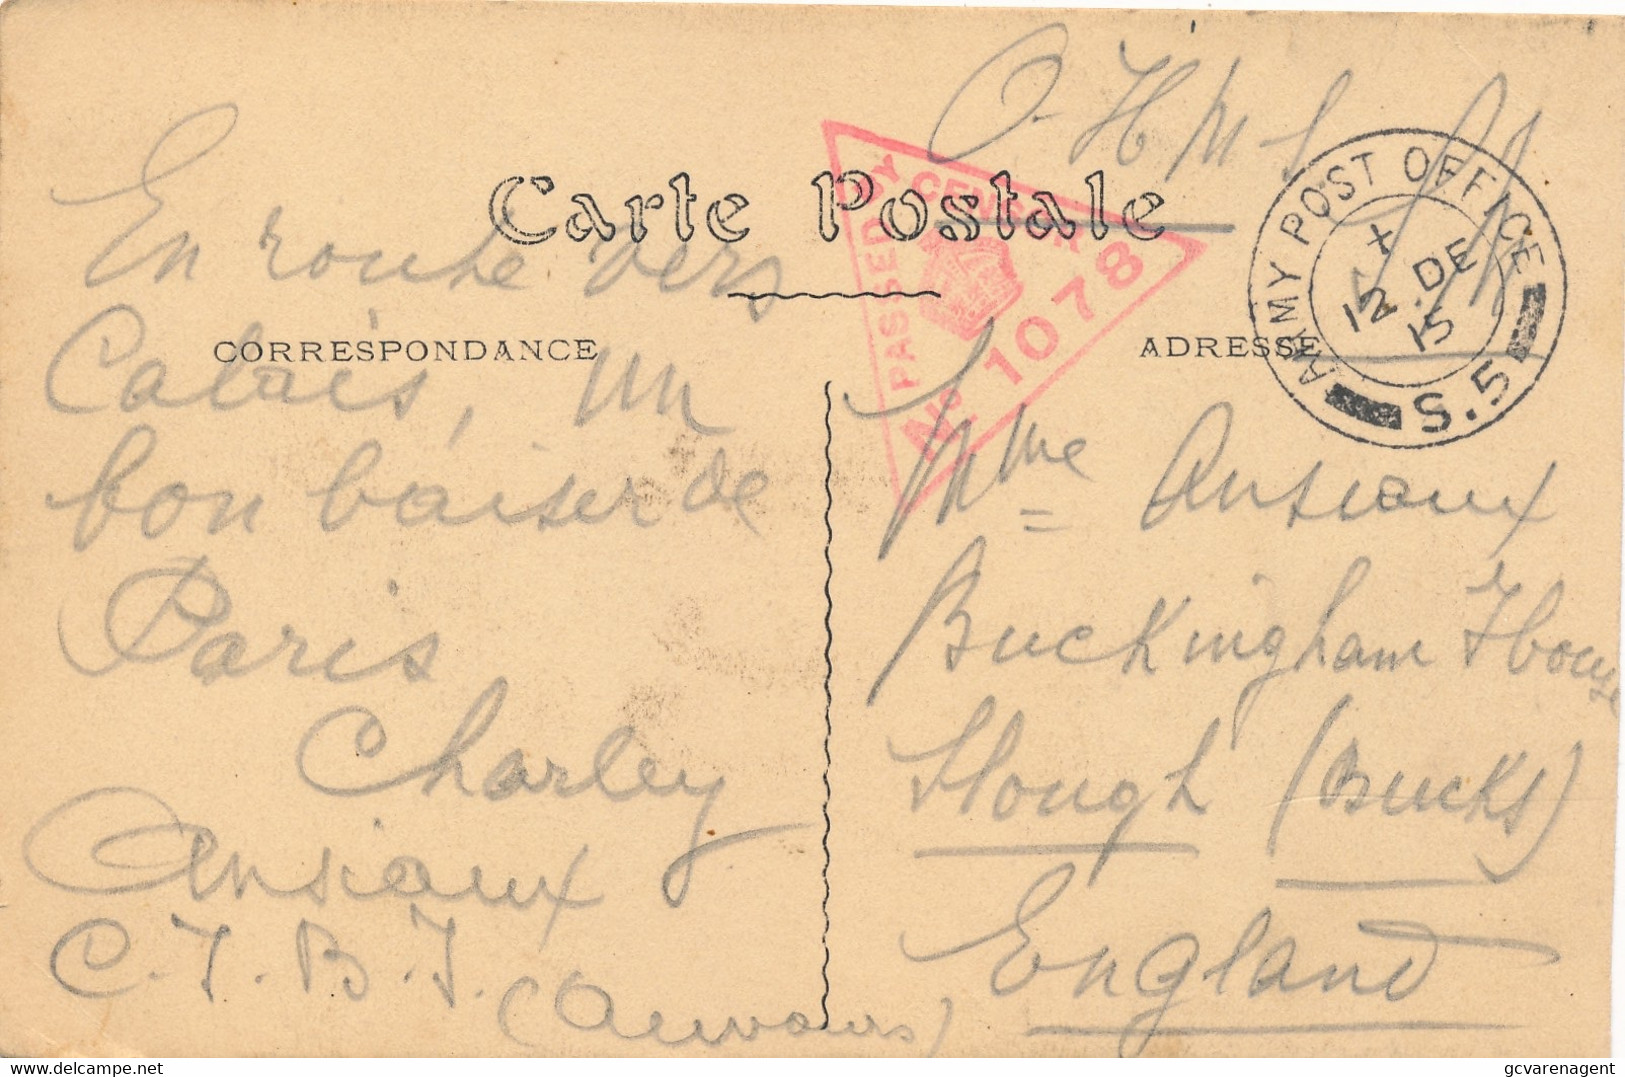 O-HMS
Carte Postale
CORRESPONDANCE
ADRESSE
PASSED BY CENSOR
No 1078
ARMY POST OFFICE
X
12 DE
15
S.5
En route vers
Calais, un
bon baiser de
Paris
Charley
Ansiaux
C.I.B.I.
(Auvours)
Mme Ansiaux
Buckingham House
Slough (Bucks)
England
www.delcampe.net
gcvarenagent